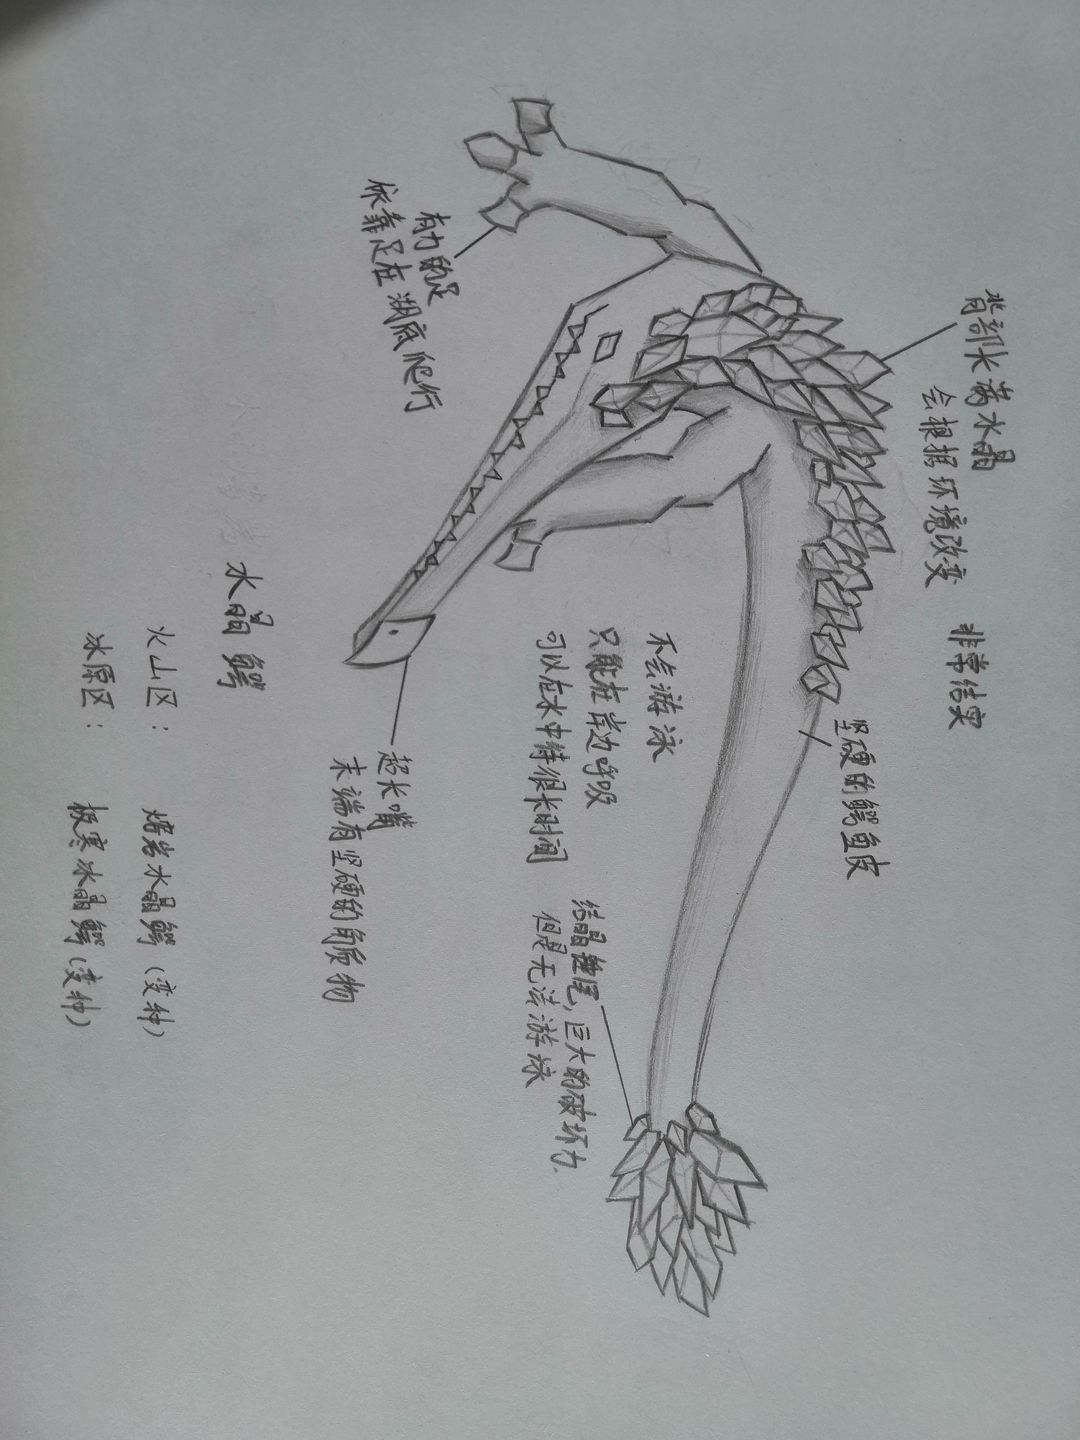 背部长满水晶
会根据环境改变
非常结实
坚硬的鳄鱼皮
有力的足
依靠足在湖底爬行
不会游泳
只能在岸边呼吸
可以在水中待很长时间
结晶锤尾,巨大的破坏力.
但是无法游泳
超长嘴
末端有坚硬的角质物
水晶鳄
火山区: 熔岩水晶鳄(变种)
冰原区: 极寒冰晶鳄(变种)